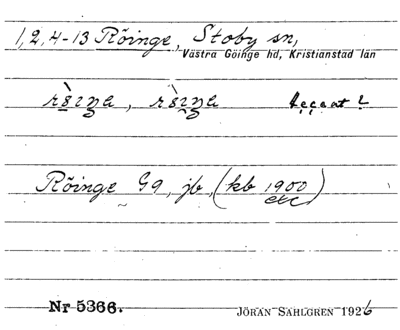 1,2,4-13 Röinge, Stoby sn,
Västra Göinge hd, Kristianstad län
Accent ?
Röinge G9, jb, (kb 1900 etc)
Nr 5366.
JÖRAN SAHLGREN 1926